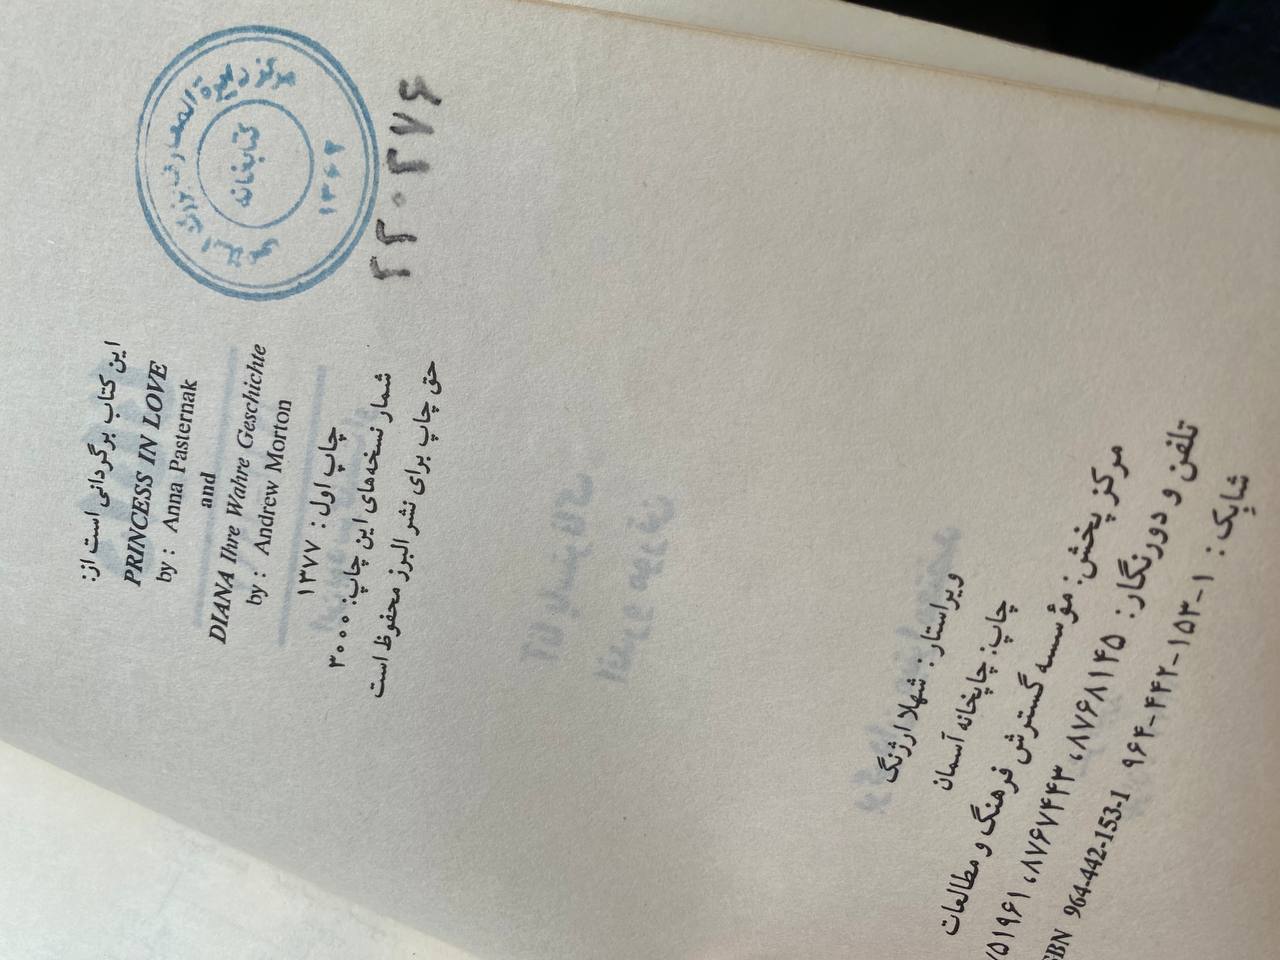 مرکز دایرةالمعارف بزرگ اسلامی
کتابخانه
۱۳۶۲
۲۲۰۲۷۶
این کتاب برگردانی است از:
PRINCESS IN LOVE
by : Anna Pasternak
and
DIANA Ihre Wahre Geschichte
by : Andrew Morton
چاپ اول : ۱۳۷۷
شمار نسخه‌های این چاپ: ۳۰۰۰
حق چاپ برای نشر البرز محفوظ است
ویراستار : شهلا ارژنگ
چاپ: چاپخانه آسمان
مرکز پخش: مؤسسه گسترش فرهنگ و مطالعات
تلفن و دورنگار: ۸۷۶۸۱۴۵، ۸۷۶۷۴۴۳، ۷۵۱۹۶۱
شابک : ۱-۱۵۳-۴۴۲-۹۶۴ ISBN 964-442-153-1